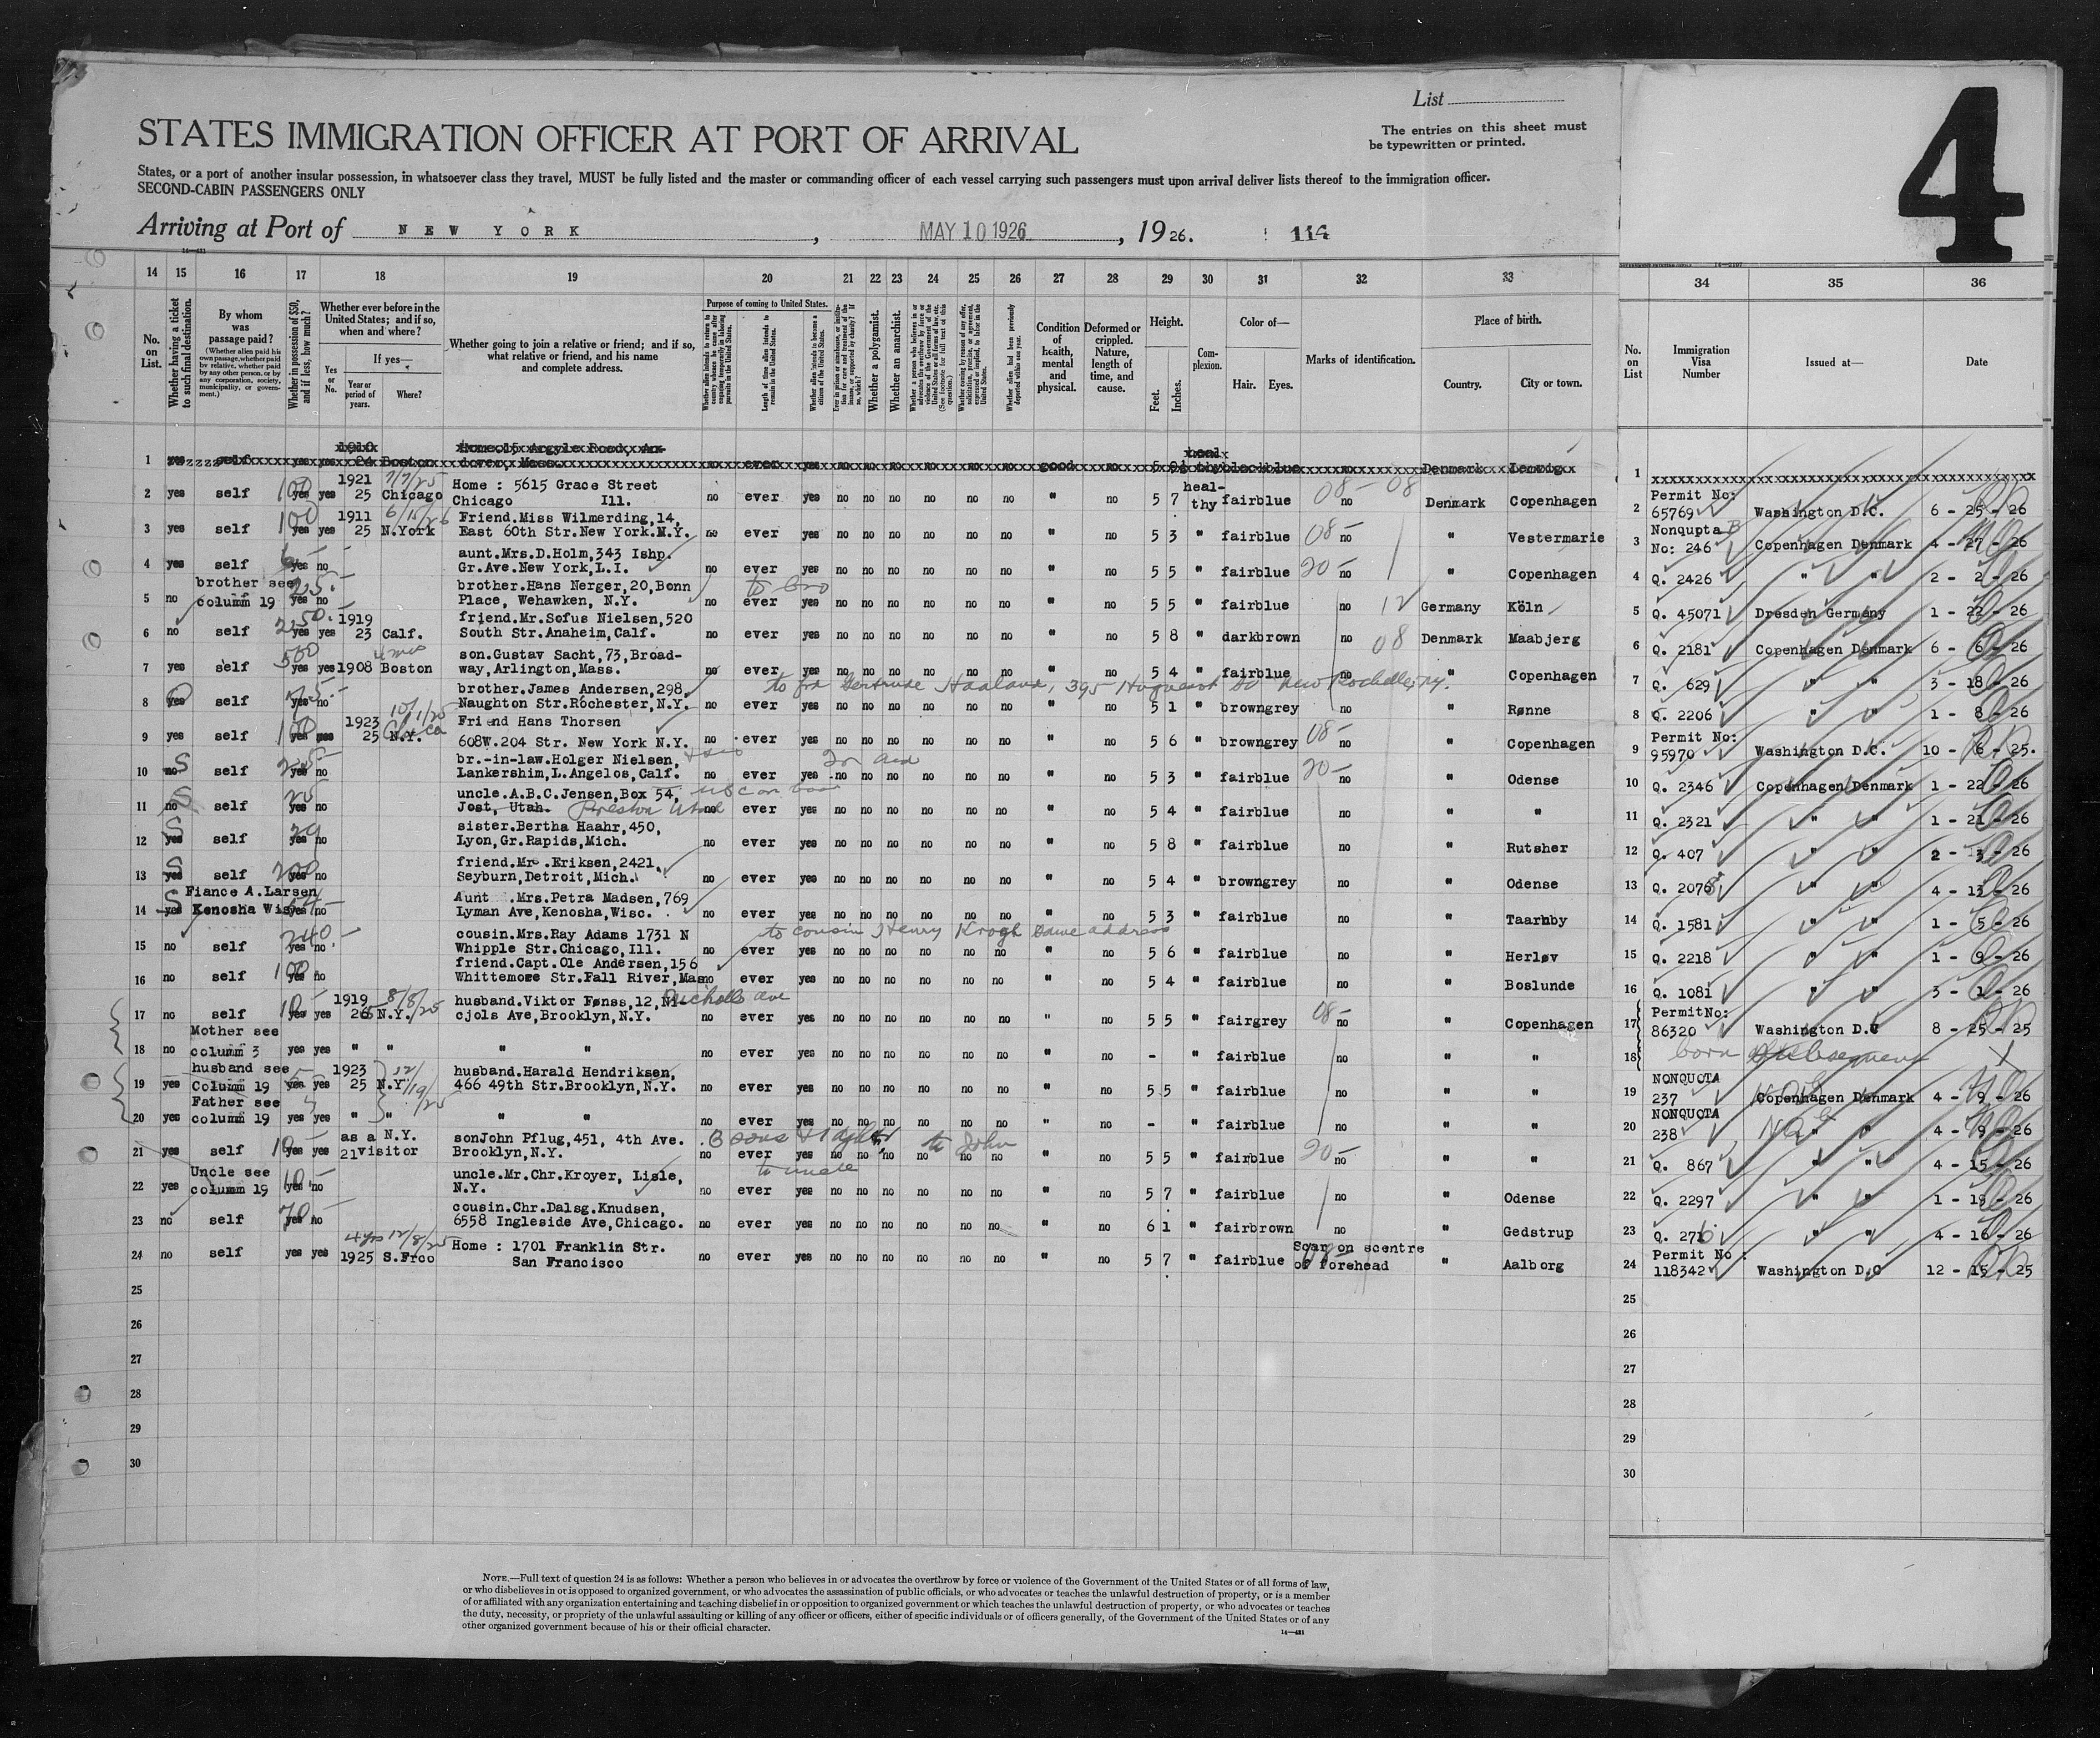 List
STATES IMMIGRATION OFFICER AT PORT OF ARRIVAL
The entries on this sheet must
be typewritten or printed.
4
States, or a port of another insular possession, in whatsoever class they travel, MUST be fully listed and the master or commanding officer of each vessel carrying such passengers must upon arrival deliver lists thereof to the immigration officer.
SECOND-CABIN PASSENGERS ONLY
Arriving at Port of NEW YORK, MAY 10 1926, 1926. 114
14 15 16 17 18 19 20 21 22 23 24 25 26 27 28 29 30 31 32 33 34 35 36
No. on List.
Whether having a ticket to such final destination.
By whom was passage paid?
(Whether alien paid his own passage, whether paid by relative, whether paid by any other person, or by any corporation, society, municipality, or government.)
Whether in possession of $50, and if less, how much?
Whether ever before in the United States; and if so, when and where?
If yes—
Yes or No.
Year or period of years.
Where?
Whether going to join a relative or friend; and if so, what relative or friend, and his name and complete address.
Purpose of coming to United States.
Length of time alien intends to remain in the United States.
Whether alien intends to become a citizen of the United States.
Whether a polygamist.
Whether an anarchist.
Condition of health, mental and physical.
Deformed or crippled. Nature, length of time, and cause.
Height.
Feet. Inches.
Complexion.
Color of—
Hair. Eyes.
Marks of identification.
Place of birth.
Country. City or town.
No. on List
Immigration Visa Number
Issued at—
Date
1 yes self yes yes 1910 24 Boston Home:15 Argyle Road, An-
dover, Mass. no ever yes no no no no no no good no 5 9½ heal thy black blue no Denmark Lemvig 1
2 yes self 100 yes yes 1921 25 7/7/25 Chicago Home : 5615 Grace Street
Chicago Ill. no ever yes no no no no no no " no 5 7 heal-thy fair blue 08- no 08 Denmark Copenhagen 2 Permit No: 65769 Washington D.C. 6 - 25 - 26
3 yes self 100 yes yes 1911 25 6/15/26 N.York Friend.Miss Wilmerding,14,
East 60th Str.New York.N.Y. no ever yes no no no no no no " no 5 3 " fair blue 08- no " Vestermarie 3 Nonquota No: 246 Copenhagen Denmark 4 - 27 - 26
4 yes self yes no aunt.Mrs.D.Holm,343 Ishp.
Gr.Ave.New York,L.I. no ever yes no no no no no no " no 5 5 " fair blue 20- no " Copenhagen 4 Q. 2426 " " 2 - 2 - 26
5 no brother see column 19 25- yes no brother.Hans Nerger,20,Bonn
Place, Wehawken, N.Y. to bro no ever yes no no no no no no " no 5 5 " fair blue no 12 Germany Köln 5 Q. 45071 Dresden Germany 1 - 22 - 26
6 no self 250- yes yes 1919 23 Calf. friend.Mr.Sofus Nielsen,520
South Str.Anaheim,Calf. no ever yes no no no no no no " no 5 8 " dark brown no 08 Denmark Maabjerg 6 Q. 2181 Copenhagen Denmark 6 - 6 - 26
7 yes self 500 yes yes 1908 Boston son.Gustav Sacht,73,Broad-
way,Arlington,Mass. no ever yes no no no no no no " no 5 4 " fair blue no " Copenhagen 7 Q. 629 " " 3 - 18 - 26
8 yes self yes no brother.James Andersen,298,
Naughton Str.Rochester,N.Y. to frd Gertrude Haaland, 395 Huguenot St New Rochelle, NY. no ever yes no no no no no no " no 5 1 " brown grey no " Rønne 8 Q. 2206 " " 1 - 8 - 26
9 yes self 100 yes yes 1923 25 10/1/25 N.Y. Friend Hans Thorsen
608W.204 Str. New York N.Y. no ever yes no no no no no no " no 5 6 " brown grey 08- no " Copenhagen 9 Permit No: 95970 Washington D.C. 10 - 6 - 25.
10 S no self 25- yes no br.-in-law.Holger Nielsen,
Lankershim,L.Angelos,Calf. no ever yes no no no no no no " no 5 3 " fair blue 20- no " Odense 10 Q. 2346 Copenhagen Denmark 1 - 22 - 26
11 S no self yes no uncle.A.B.C.Jensen,Box 54,
Jost, Utah. Preston Utah no ever yes no no no no no no " no 5 4 " fair blue no " " 11 Q. 2321 " " 1 - 21 - 26
12 S yes self yes no sister.Bertha Haahr,450,
Lyon,Gr.Rapids,Mich. no ever yes no no no no no no " no 5 8 " fair blue no " Rutsher 12 Q. 407 " " 2 - 3 - 26
13 S yes self 200 yes no friend.Mr .Eriksen,2421,
Seyburn,Detroit,Mich. no ever yes no no no no no no " no 5 4 " brown grey no " Odense 13 Q. 2078 " " 4 - 13 - 26
14 S yes Fiance A.Larsen Kenosha Wis. yes no Aunt .Mrs.Petra Madsen,769
Lyman Ave,Kenosha,Wisc. no ever yes no no no no no no " no 5 3 " fair blue no " Taarnby 14 Q. 1581 " " 1 - 5 - 26
15 no self 240- yes no cousin.Mrs.Ray Adams 1731 N
Whipple Str.Chicago,Ill. to cousin Henry Krogh same address no ever yes no no no no no no " no 5 6 " fair blue no " Herløv 15 Q. 2218 " " 1 - 9 - 26
16 no self 100 yes no friend.Capt.Ole Andersen,156
Whittemore Str.Fall River,Mas no ever yes no no no no no no " no 5 4 " fair blue no " Boslunde 16 Q. 1081 " " 3 - 1 - 26
17 no self 10- yes yes 1919 26 8/8/25 N.Y. husband.Viktor Fønss,12,Ni-
cjols Ave,Brooklyn,N.Y. Nicholls ave no ever yes no no no no no no " no 5 5 " fair grey 08- no " Copenhagen 17 PermitNo: 86320 Washington D.C 8 - 25 - 25
18 no Mother see column 3 yes yes " " " " no ever yes no no no no no no " no - " fair blue no " " 18 born subsequent
19 yes husband see Column 19 yes yes 1923 25 N.Y. 12/19/25 husband.Harald Hendriksen,
466 49th Str.Brooklyn,N.Y. no ever yes no no no no no no " no 5 5 " fair blue no " " 19 NONQUOTA 237 Copenhagen Denmark 4 - 9 - 26
20 yes Father see column 19 yes yes " " " " no ever yes no no no no no no " no - " fair blue no " " 20 NONQUOTA 238 " " 4 - 9 - 26
21 yes self 10- yes yes as a N.Y. 21 visitor sonJohn Pflug,451, 4th Ave.
Brooklyn,N.Y. to John no ever yes no no no no no no " no 5 5 " fair blue 20- no " " 21 Q. 867 " " 4 - 15 - 26
22 yes Uncle see column 19 10- yes no uncle.Mr.Chr.Kroyer, Lisle,
N.Y. to uncle no ever yes no no no no no no " no 5 7 " fair blue no " Odense 22 Q. 2297 " " 1 - 19 - 26
23 no self 70- yes no cousin.Chr.Dalsg.Knudsen,
6558 Ingleside Ave,Chicago. no ever yes no no no no no no " no 6 1 " fair brown no " Gedstrup 23 Q. 276 " " 4 - 16 - 26
24 no self yes yes 4 yrs 12/8/25 1925 S.Frco Home : 1701 Franklin Str.
San Francisco no ever yes no no no no no no " no 5 7 " fair blue Scar on scentre of forehead 08- " Aalborg 24 Permit No : 118342 Washington D.C 12 - 15 - 25
25 25
26 26
27 27
28 28
29 29
30 30
NOTE.—Full text of question 24 is as follows: Whether a person who believes in or advocates the overthrow by force or violence of the Government of the United States or of all forms of law,
or who disbelieves in or is opposed to organized government, or who advocates the assassination of public officials, or who advocates or teaches the unlawful destruction of property, or is a member
of or affiliated with any organization entertaining and teaching disbelief in or opposition to organized government or which teaches the unlawful destruction of property, or who advocates or teaches
the duty, necessity, or propriety of the unlawful assaulting or killing of any officer or officers, either of specific individuals or of officers generally, of the Government of the United States or of any
other organized government because of his or their official character.
14—421